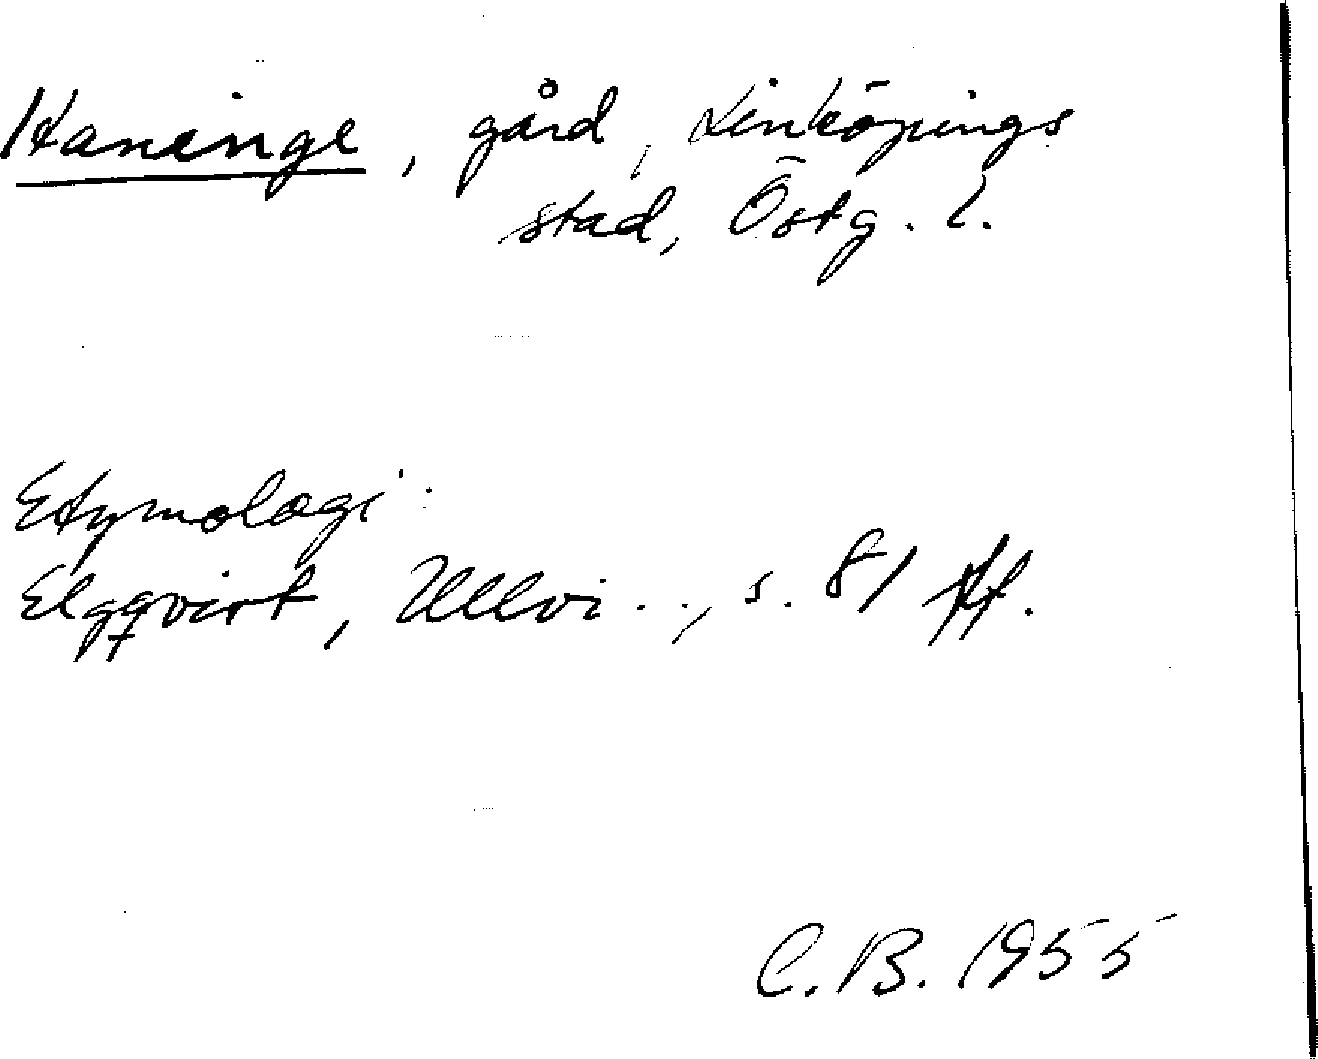 Haninge, gård, Linköpings
stad, Östg. l.
Etymologi:
Elgqvist, Ullvi.., s. 81 ff.
C.B. 1955